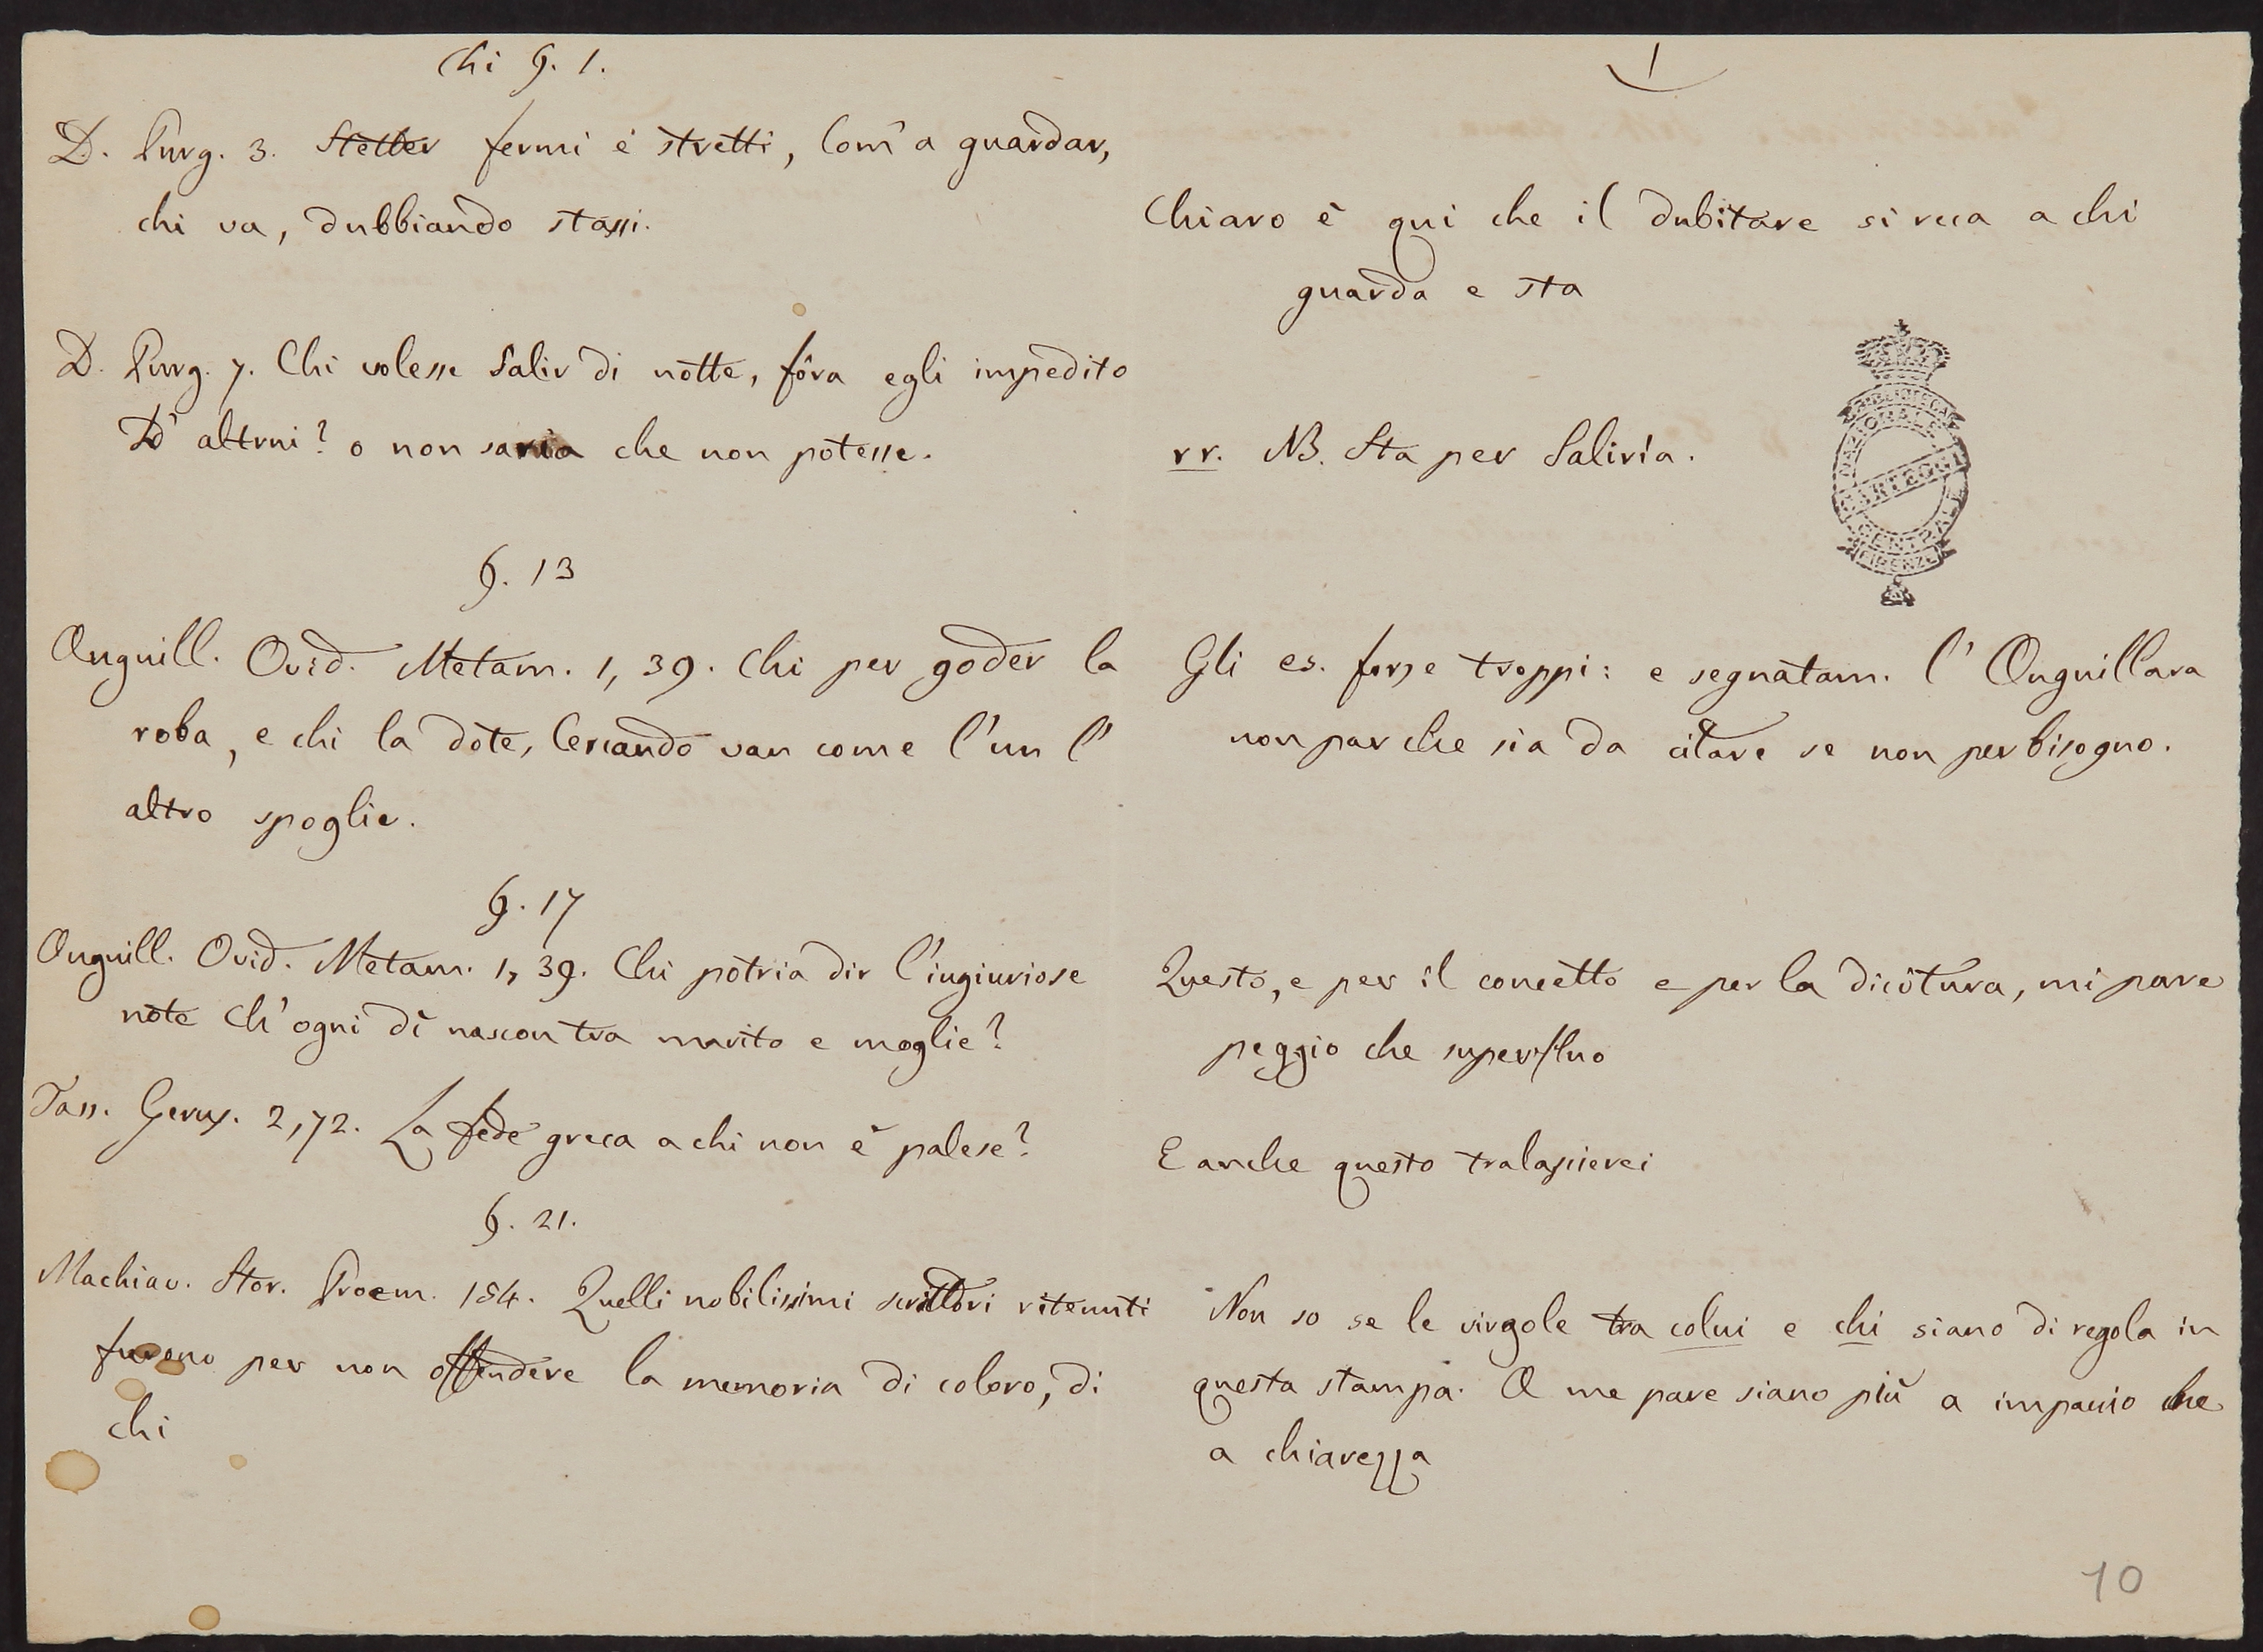 Chi §. 1.
1
D. Purg. 3. Stetter fermi e stretti, Com' a guardar,
chi va, dubbiando stassi.
Chiaro è qui che il dubitare si reca a chi
guarda e sta
D. Purg. 7. Chi volesse Salir di notte, fôra egli impedito
D' altrui? o non saria che non potesse.
rr. NB. Sta per Saliria.
BIBLIOTECA
NAZIONALE
CARTEGGI
CENTRALE
FIRENZE
§. 13
Anguill. Ovid. Metam. 1, 39. Chi per goder la
roba, e chi la dote, Cercando van come l'un l'
altro spoglie.
Gli es. forse troppi: e segnatam. l'Anguillara
non par che sia da citare se non per bisogno.
§. 17
Anguill. Ovid. Metam. 1, 39. Chi potria dir l'ingiuriose
note Ch'ogni dì nascon tra marito e moglie?
Questo, e per il concetto e per la dicitura, mi pare
peggio che superfluo
Tass. Gerus. 2,72. La fede greca a chi non è palese?
E anche questo tralascierei
§. 21.
Machiav. Stor. Proem. 184. Quelli nobilissimi scrittori ritenuti
furono per non offendere la memoria di coloro, di
chi
Non so se le virgole tra colui e chi siano di regola in
questa stampa. A me pare siano più a impaccio che
a chiarezza
10